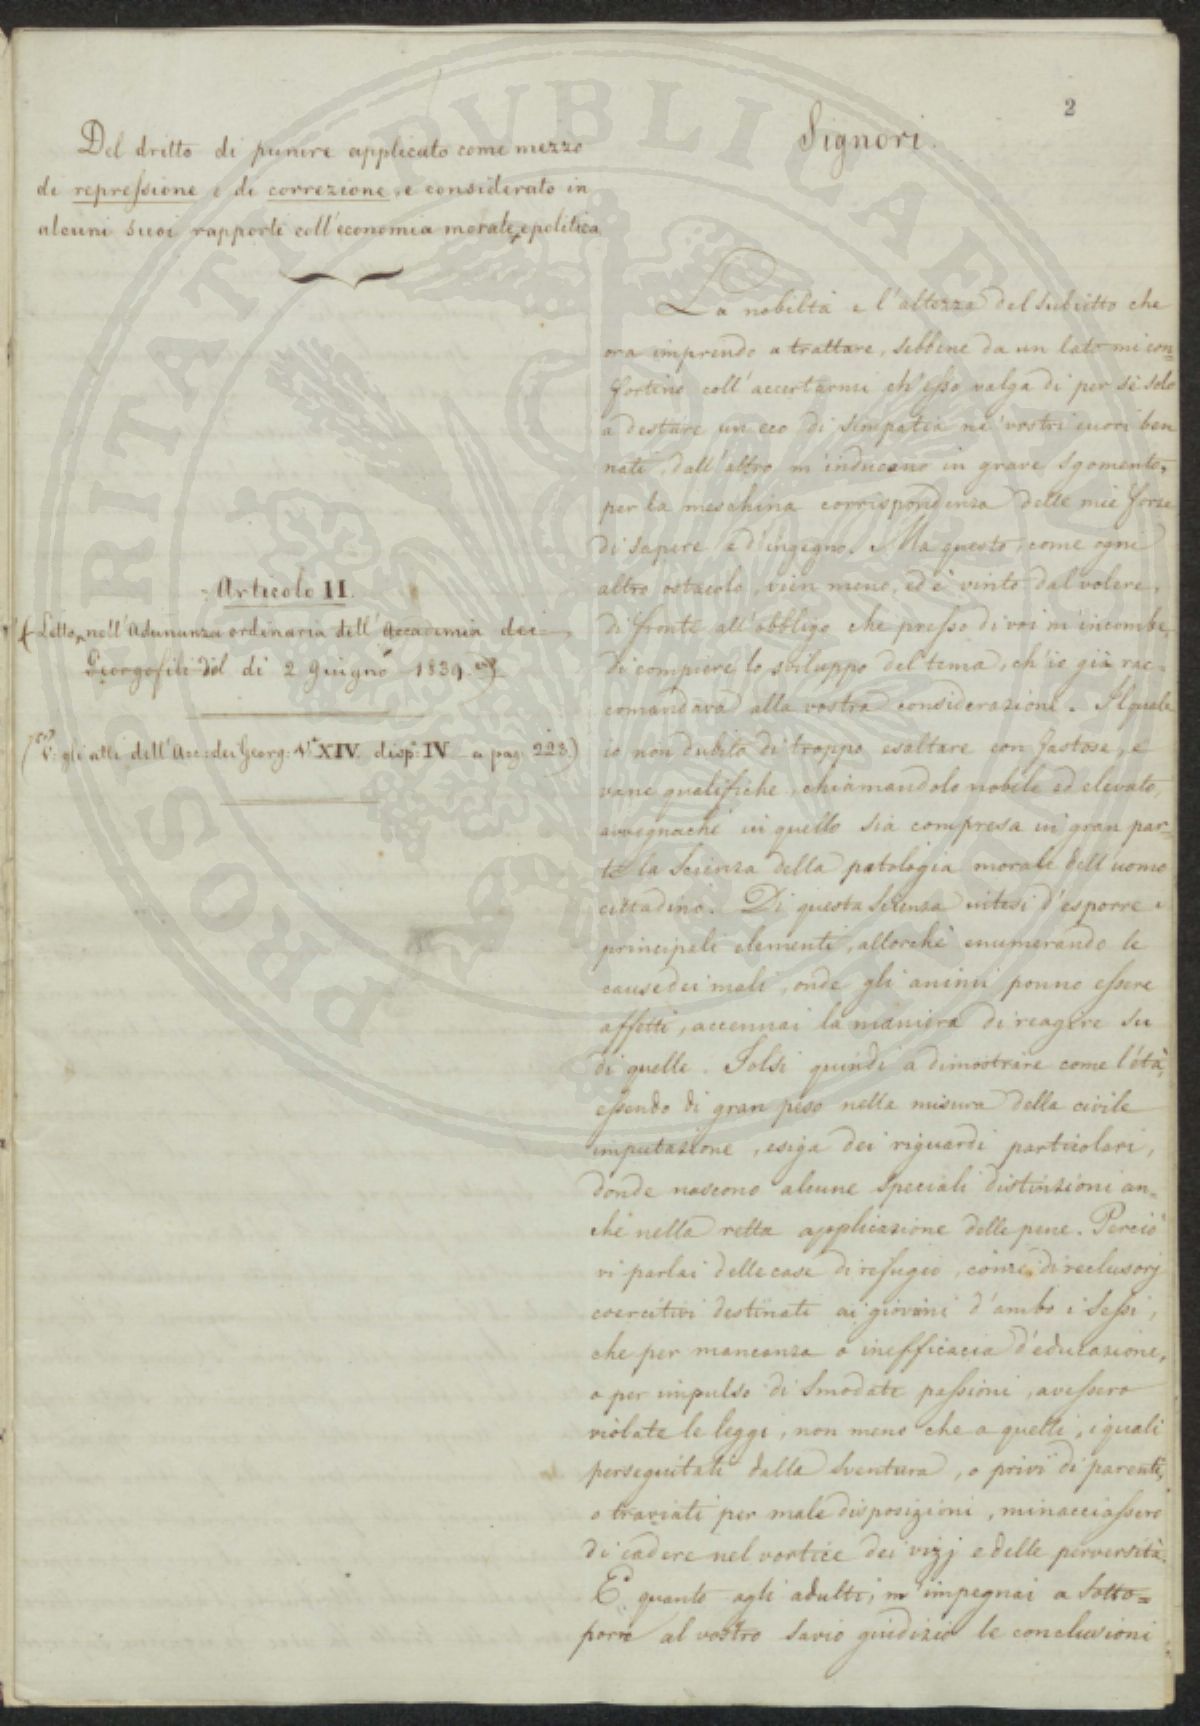 2
Del dritto di punire applicato come mezzo
di repressione e di correzione, e considerato in
alcuni suoi rapporti coll'economia morale e politica
Articolo II.
(Letto nell'Adunanza ordinaria dell'Accademia dei
Georgofili del di 2 Giugno 1839.)
(V: gli atti dell'Acc: dei Georg: XIV. disp: IV a pag: 223.)
Signori.
La nobiltà e l'altezza del subietto che
ora imprendo a trattare, sebbene da un lato mi con=
fortino coll'accertarmi ch'esso valga di per sè solo
a destare un eco di simpatia ne' vostri cuori ben
nati, dall'altro m'inducano in grave sgomento,
per la meschina corrispondenza delle mie forze
di sapere e d'ingegno. Ma questo, come ogni
altro ostacolo, vien meno, ed è vinto dal volere,
di fronte all'obbligo che presso di voi m'incombe,
di compiere lo sviluppo del tema, ch'io già rac=
comandava alla vostra considerazione. Il quale
io non dubito di troppo esaltare con fastose, e
vane qualifiche, chiamandolo nobile ed elevato,
avvegnachè in quello sia compresa in gran par=
te la scienza della patologia morale dell'uomo
cittadino. Di questa scienza intesi d'esporre i
principali elementi, allorchè enumerando le
cause dei mali, onde gli animi ponno essere
affetti, accennai la maniera di reagire su
di quelle. Tolsi quindi a dimostrare come l'età,
essendo di gran peso nella misura della civile
imputazione, esiga dei riguardi particolari,
donde nascono alcune speciali distinzioni an=
che nella retta applicazione delle pene. Perciò
vi parlai delle case di refugio, come di reclusorj
coercitivi destinati ai giovani d'ambo i sessi,
che per mancanza o inefficacia d'educazione,
o per impulso di smodate passioni, avessero
violate le leggi, non meno che a quelli, i quali
perseguitati dalla sventura, o privi di parenti,
o traviati per male disposizioni, minacciassero
di cadere nel vortice dei vizj e delle perversità.
E quanto agli adulti, m'impegnai a sotto=
porre al vostro savio giudizio le conclusioni
PROSPERITATI PUBLICAE